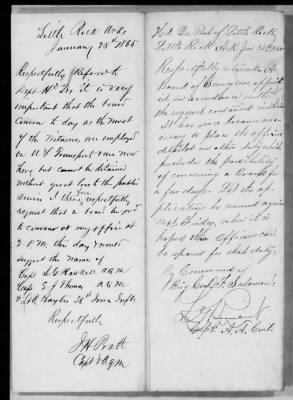 Little Rock Arks,
January 25th 1865
Respectfully Referred to
Dept Hd Qrs, it is very
important that the board
convene to day as the most
of the Witnesses are employed
on U S Transport & are now
here but cannot be detained
without great loss to the public
Service. I therefore respectfully
request that a board be ord
to convene at my office at
2 P.M. this day & would
suggest the name of
Capt S. E. A Q M
Capt E. J. A Q M
& Lt A. 36th Iowa Infty
Respectfully
J H Pratt
Capt & AQM
Hd. Qrs Post of Little Rock
Little Rock Ark Jan
Respectfully returned. A
Board of Survey was appoint
ed in accordance with
the request contained within
It has since become nec
essary to place the officers
detailed on other duty which
precludes the possibility
of convening a Board for
a few days. Let the ap
plication be renewed again
next Friday, when it is
hoped three Officers can
be spared for that duty.
By Command of
Brig Genl F. Salomon
Capt. A. A. Genl.